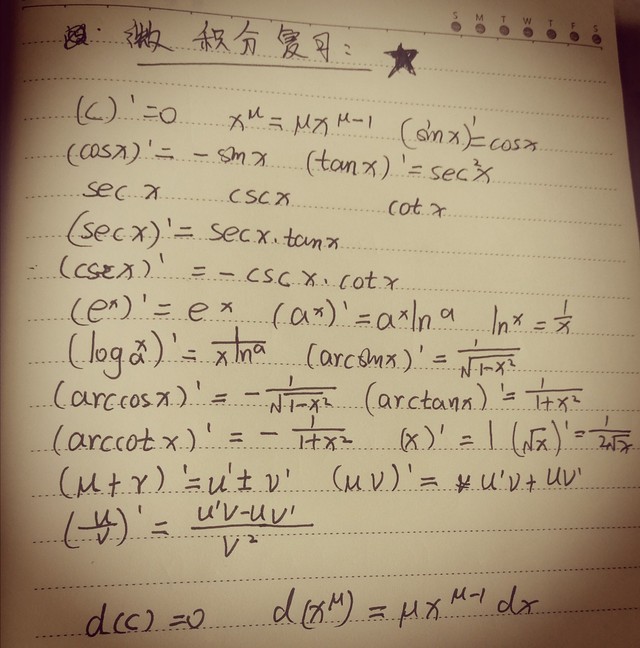 S M T W T F S
微积分复习:
(C)'=0 x^μ = μx^μ-1 (sinx)'=cosx
(cosx)' = -sinx (tanx)'=sec²x
sec x csc x cot x
(secx)' = secx·tanx
(cscx)' = -cscx·cotx
(e^x)' = e^x (a^x)'=a^x ln a ln x = 1/x
(log_a^x)' = 1/(x ln a) (arcsinx)' = 1/√(1-x²)
(arccosx)' = -1/√(1-x²) (arctanx)' = 1/(1+x²)
(arccotx)' = -1/(1+x²) (x)' = 1 (√x)' = 1/(2√x)
(μ+v)'=u'±v' (μv)' = u'v+uv'
(u/v)' = (u'v-uv')/v²
d(c)=0 d(x^μ) = μx^μ-1 dx